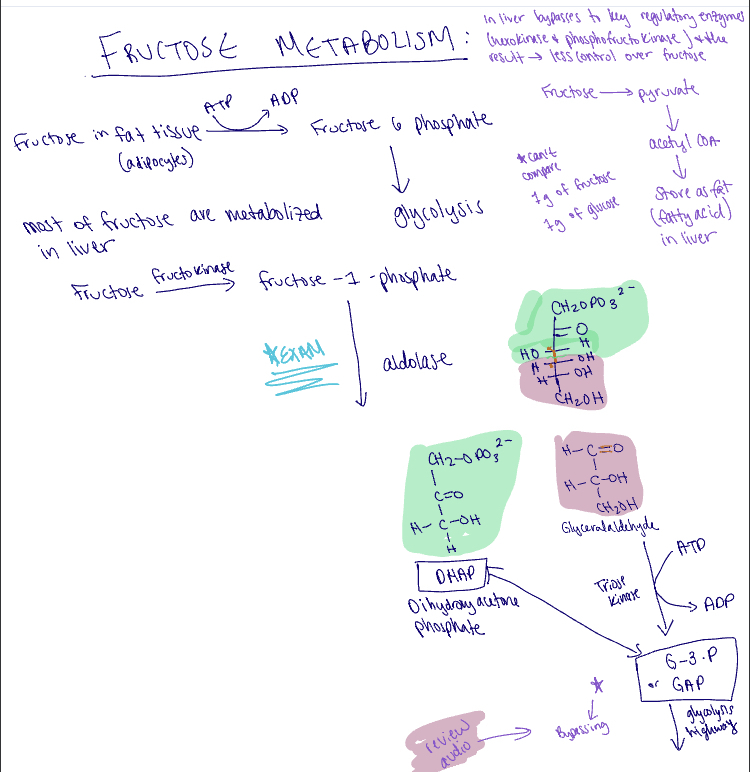 FRUCTOSE METABOLISM:
in liver bypasses to key regulatory enzymes
(hexokinase & phosphofructokinase) & the
result → less control over fructose
Fructose → pyruvate
acetyl COA
Store as fat
(fatty acid)
in liver
*can't
compare
1g of fructose
1g of glucose
ATP
ADP
Fructose in fat tissue → Fructose 6 phosphate
(adipocytes)
glycolysis
most of fructose are metabolized
in liver
Fructose fructokinase → fructose-1-phosphate
*EXAM
aldolase
CH2OPO3 2-
O
HO H
H OH
H OH
CH2OH
CH2-OPO3 2-
C=O
H-C-OH
H
DHAP
Dihydroxyacetone
phosphate
H-C=O
H-C-OH
CH2OH
Glyceraldehyde
ATP
Triose
kinase
ADP
G-3-P
or GAP
glycolysis
highway
Bypassing
review
audio